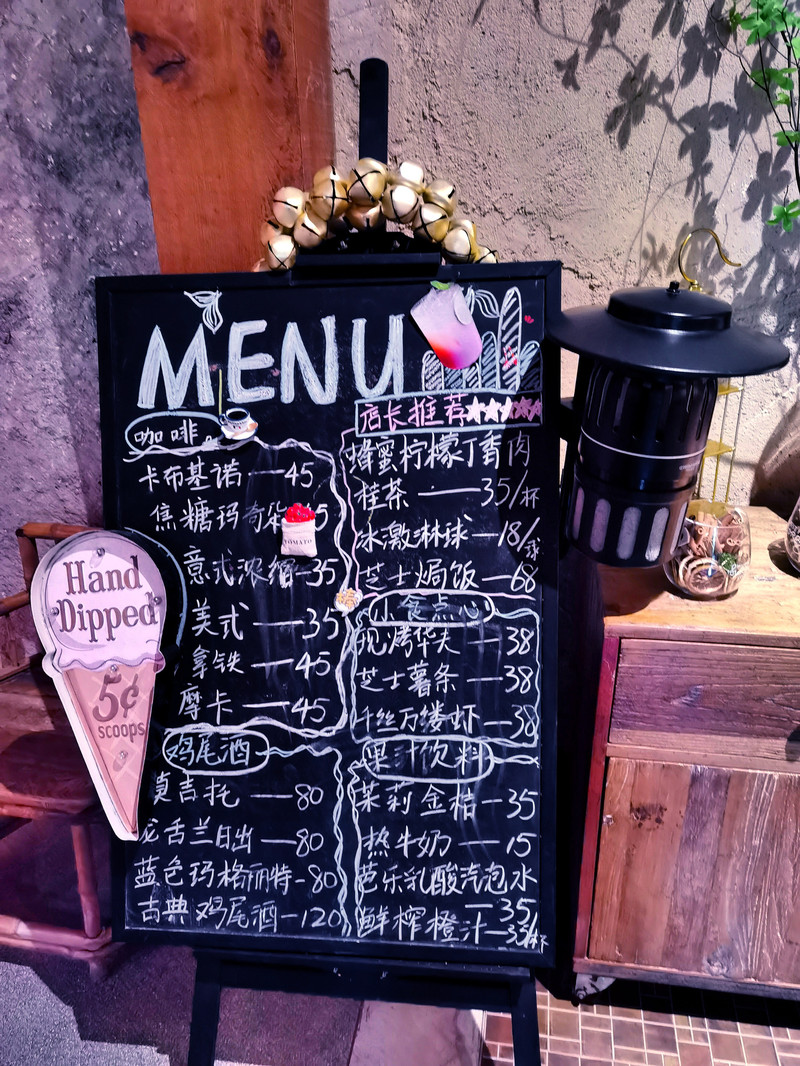 MENU
咖啡
卡布基诺—45
焦糖玛奇朵 5
意式浓缩—35
美式—35
拿铁—45
摩卡—45
鸡尾酒
莫吉托—80
龙舌兰日出—80
蓝色玛格丽特-80
古典鸡尾酒-120
店长推荐
蜂蜜柠檬丁香肉
桂茶—35/杯
冰激淋球—18/球
芝士焗饭—68
小食点心
现烤华夫—38
芝士薯条—38
千丝万缕虾—38
果汁饮料
茉莉金桔-35
热牛奶—15
芭乐乳酸汽泡水
—35/
鲜榨橙汁-35/杯
TOMATO
Hand
Dipped
5¢
scoops